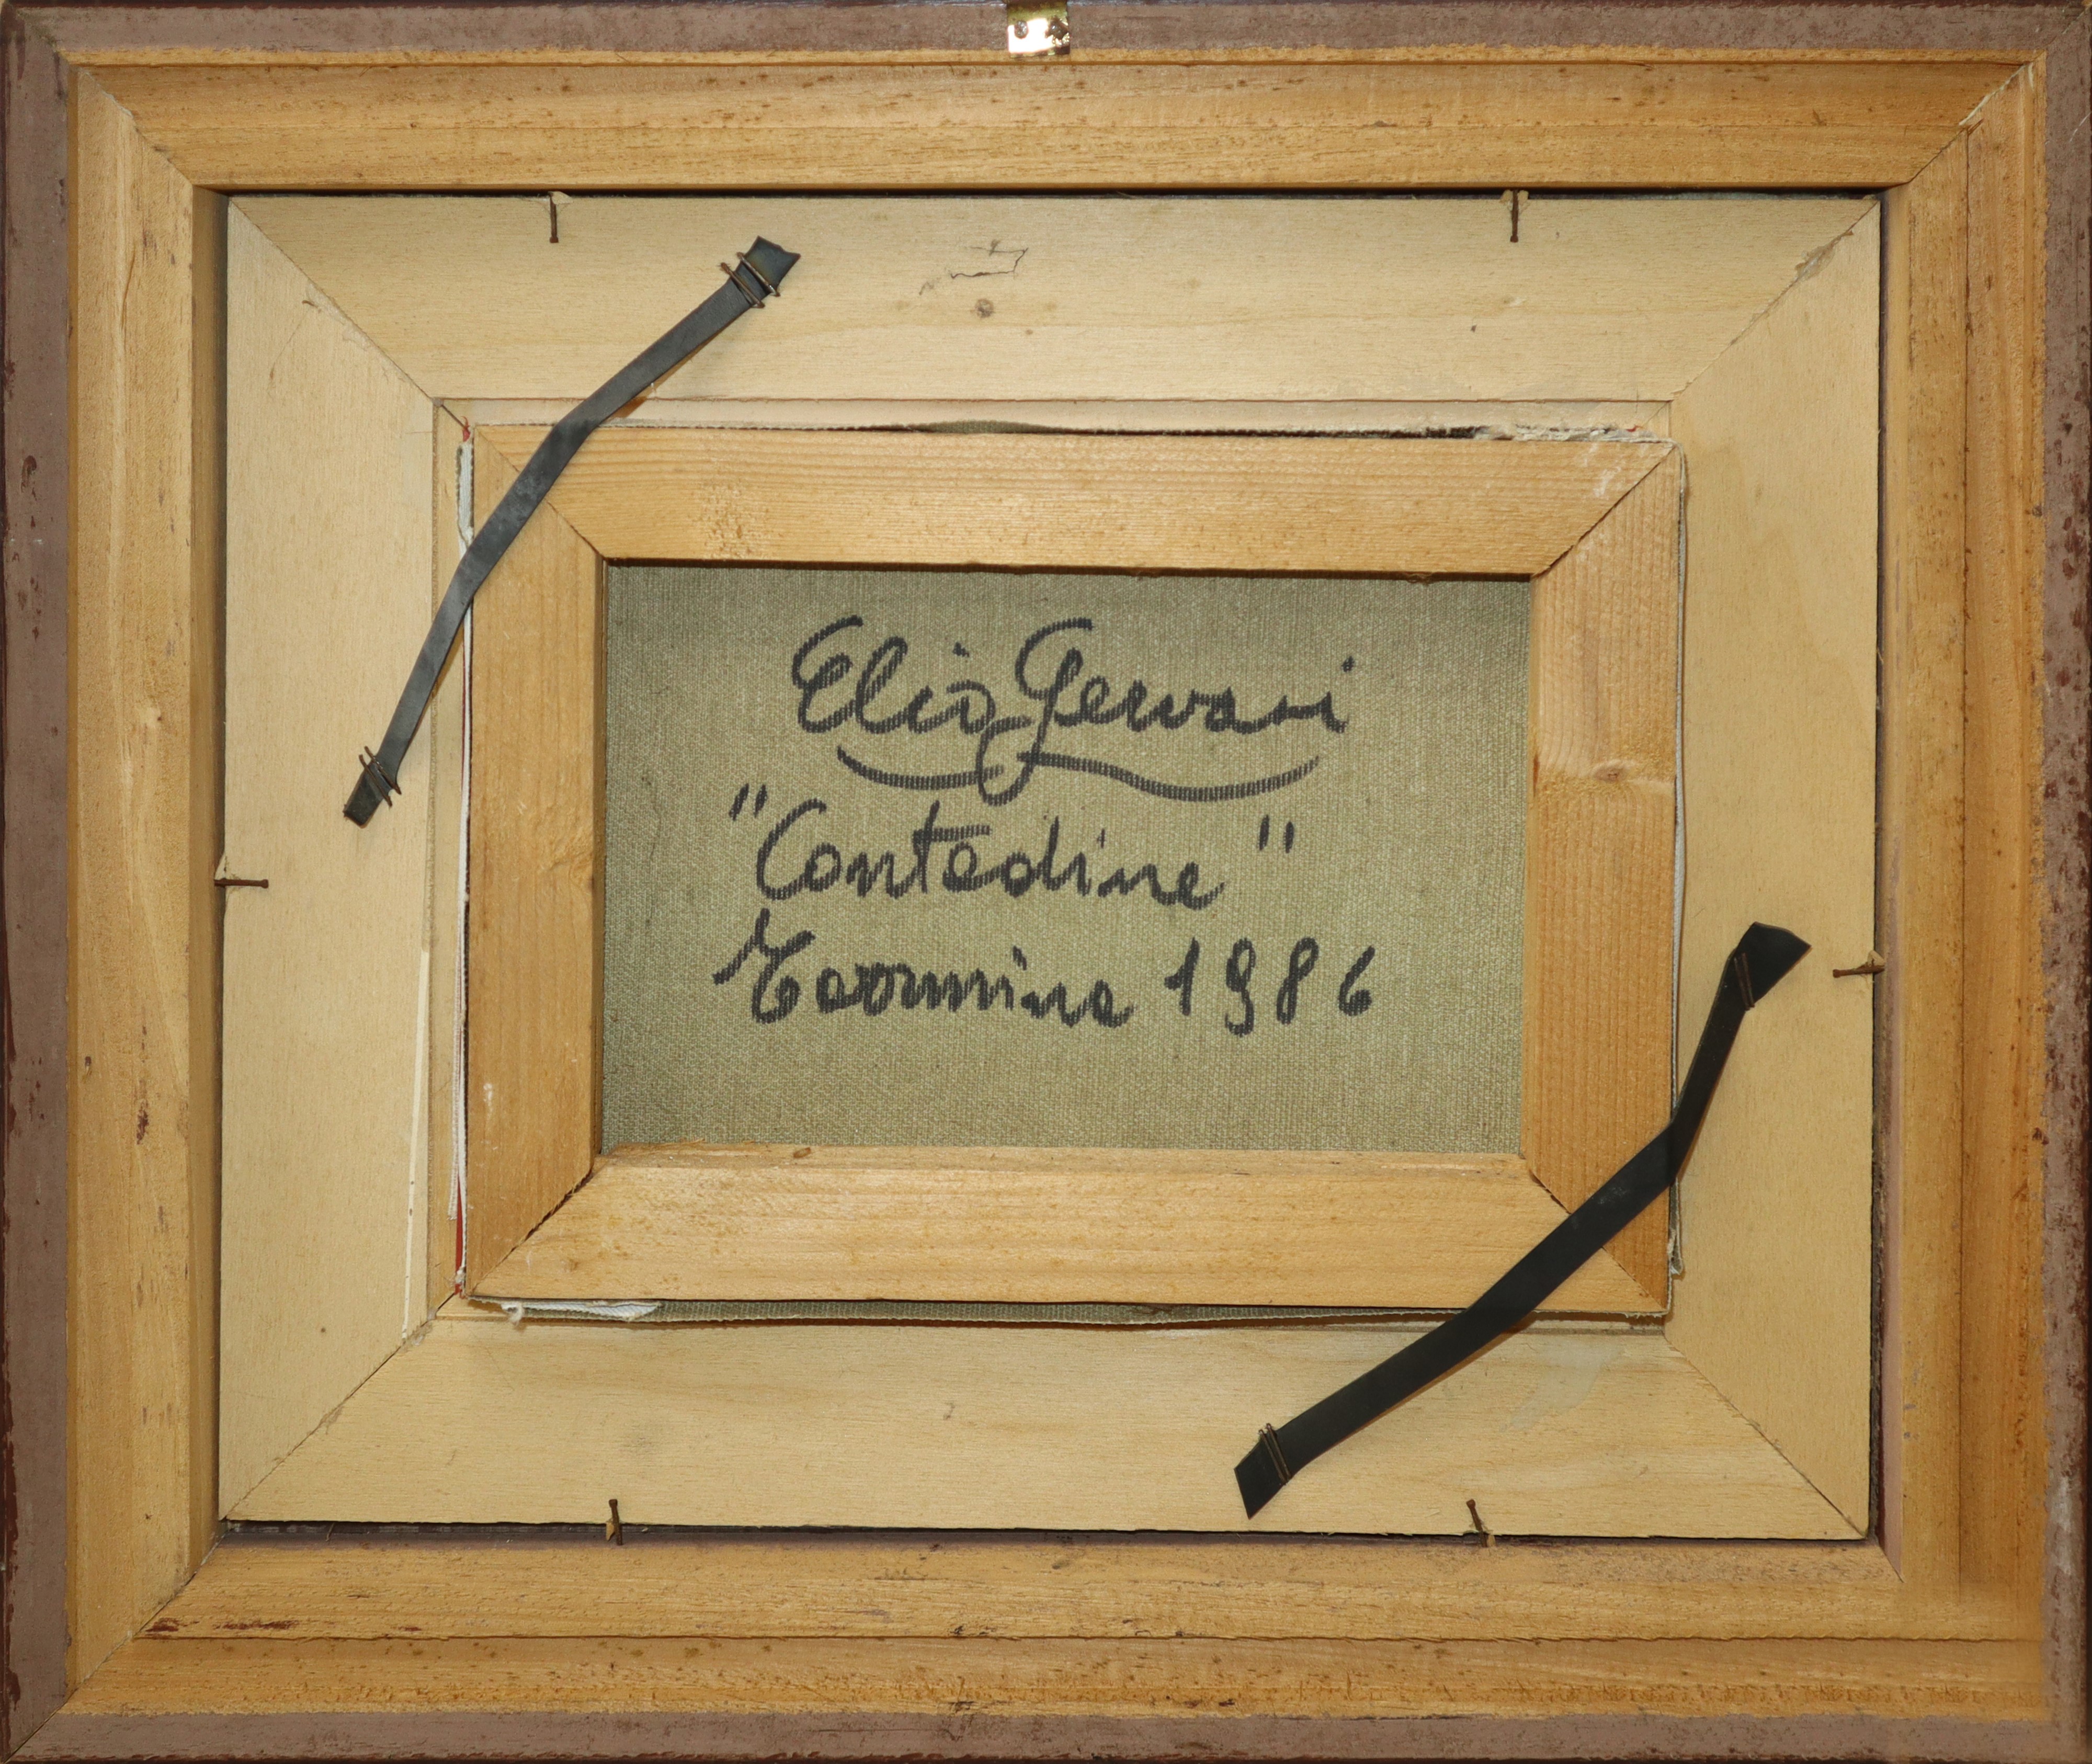 Elio Gervasi
"Contadine"
Taormina 1986